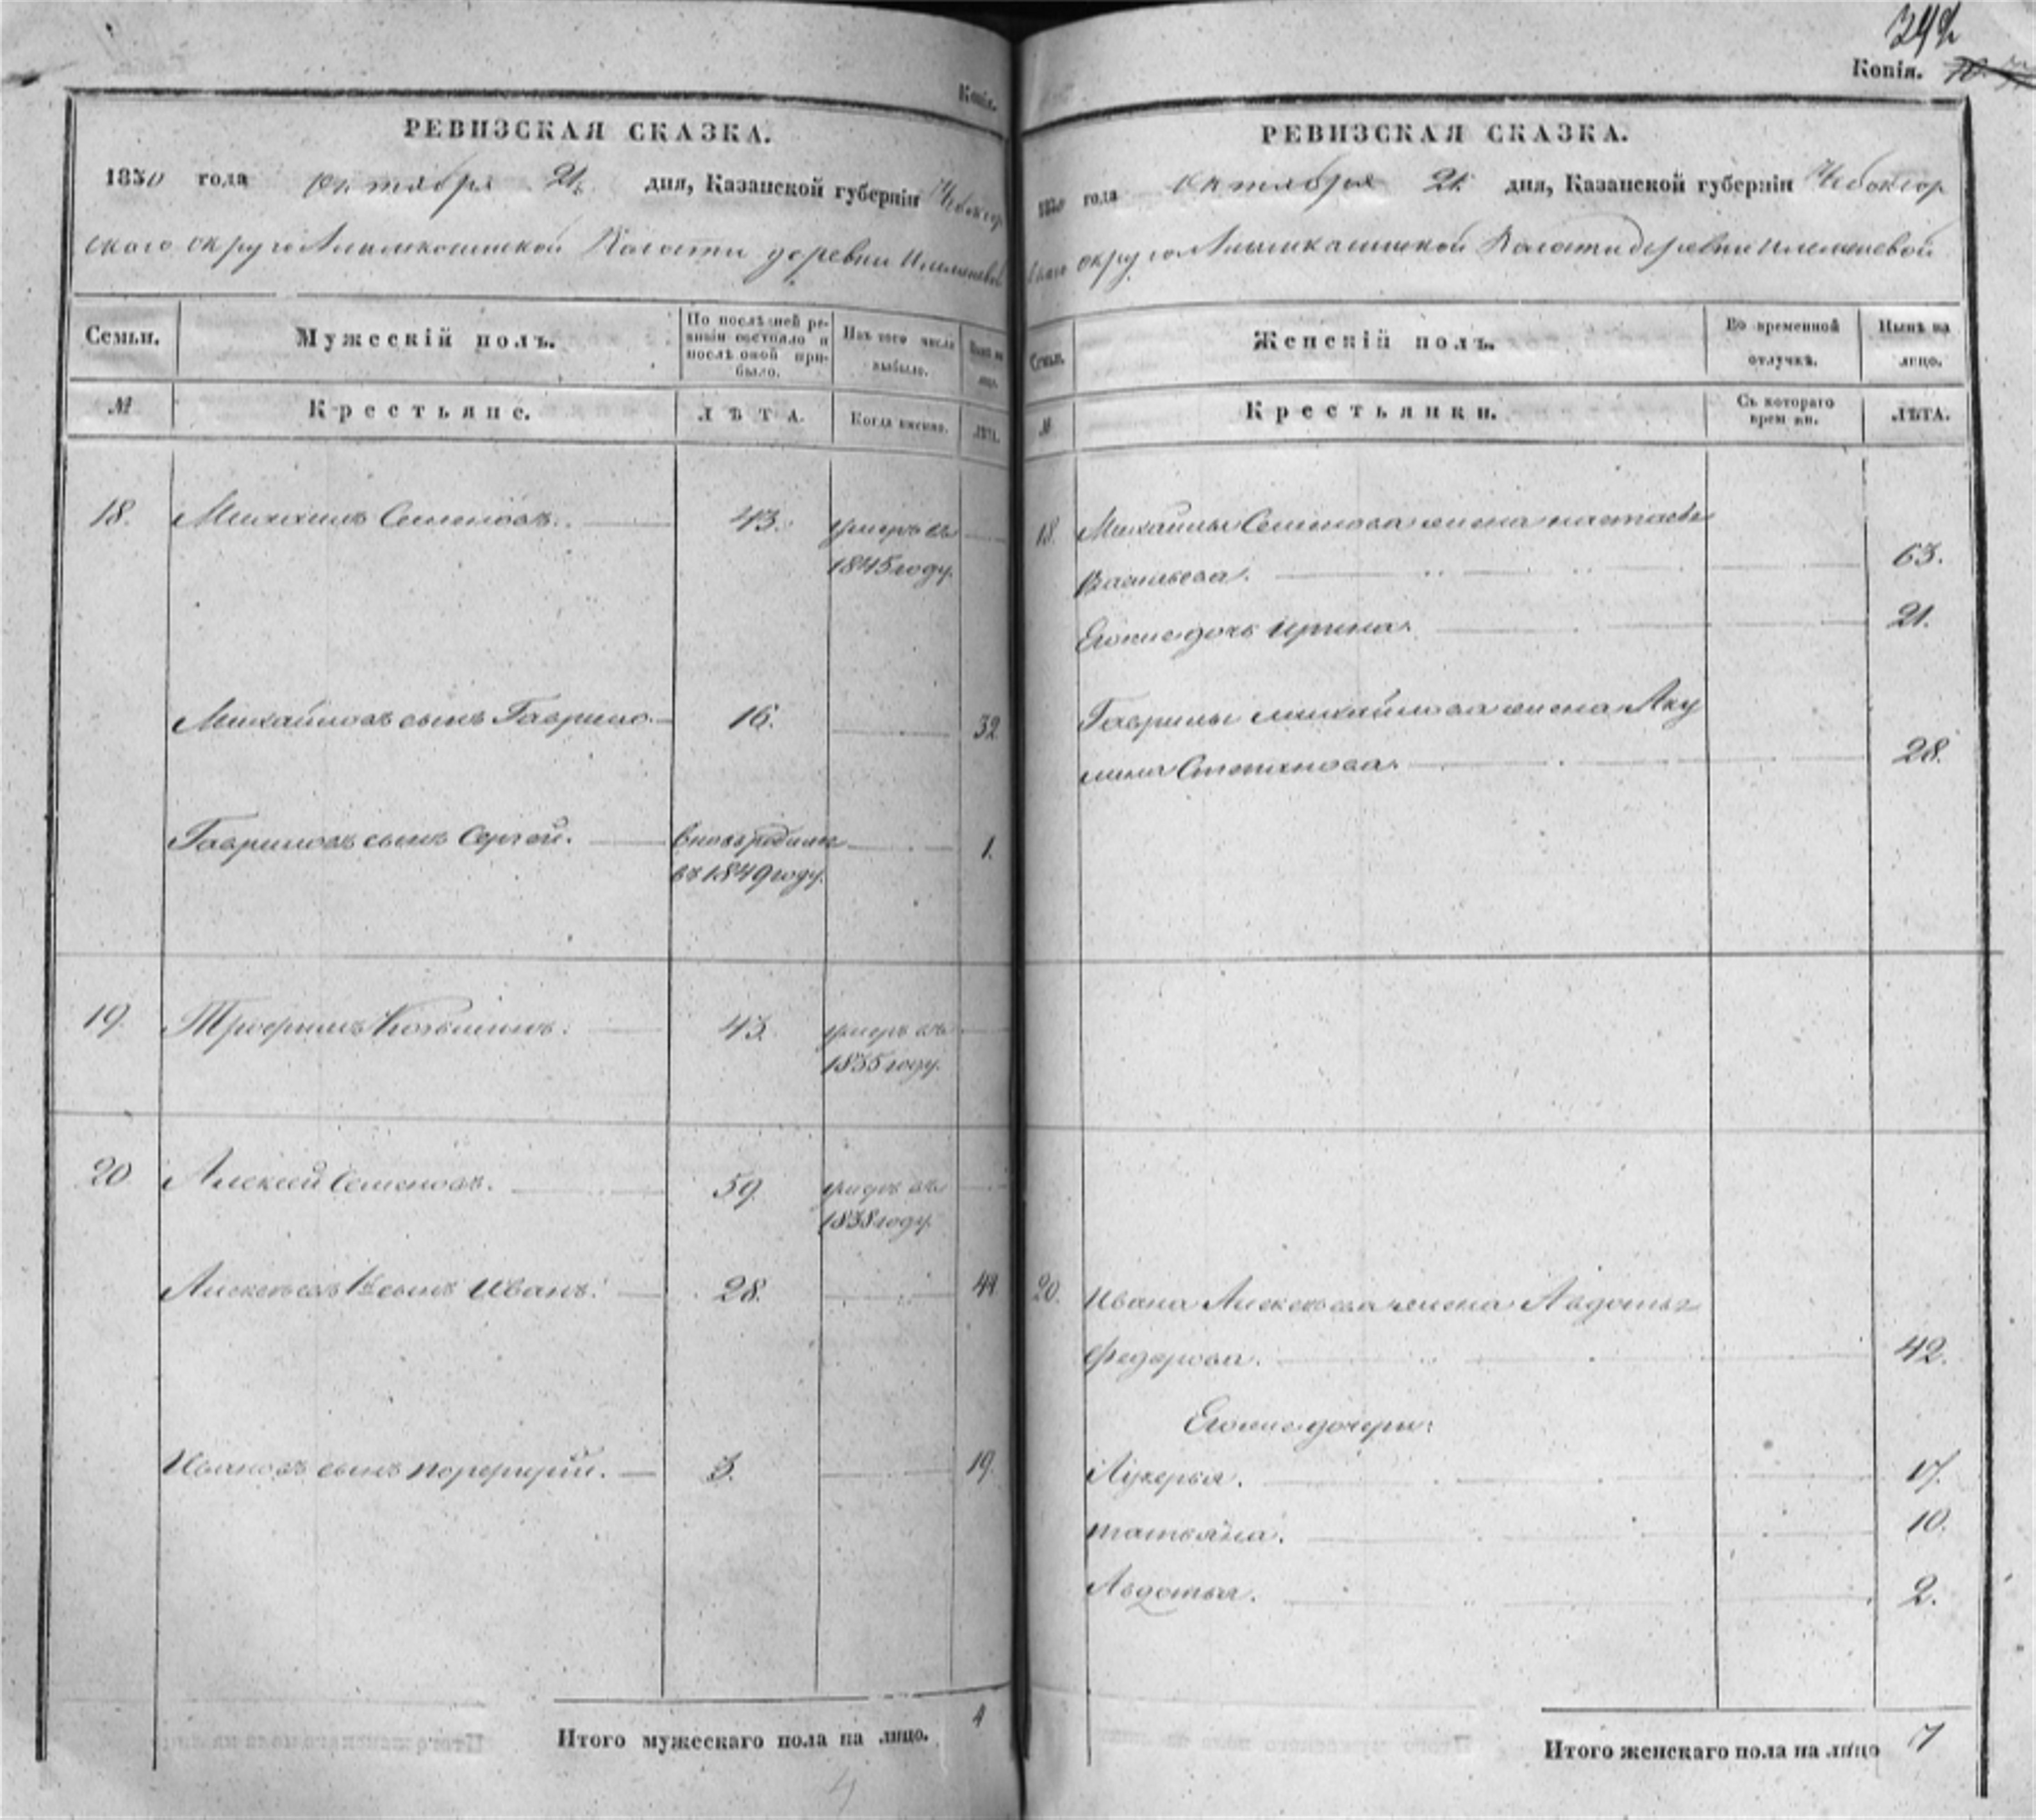 Копія.
РЕВИЗСКАЯ СКАЗКА.
1850 года октября 21 дня, Казанской губерніи Чебоксар
скаго округа Алымкасинской Волости деревни
Семьи. Мужескій полъ. По послѣдней ре-
визіи состояло и
послѣ оной при-
было. Изъ того числа
выбыло.
№ Крестьяне. ЛѢТА. Когда именно. ЛѢТА.
18. Михаилъ Семеновъ. 43. умеръ въ
1845 году.
Михайловъ сынъ Гаврило. 16. 32
Гавриловъ сынъ Сергей. вновь родился 1.
въ 1849 году.
19. Трофимъ 43. умеръ въ
1835 году.
20 Алексей Семеновъ. 59. умеръ въ
1838 году.
Алексеевъ 1й сынъ Иванъ. 28. 44
Ивановъ сынъ Порфирий. 3. 19.
Итого мужескаго пола на лицо. 4
Копія.
РЕВИЗСКАЯ СКАЗКА.
1850 года октября 21 дня, Казанской губерніи Чебоксар
скаго округа Алымкасинской Волости деревни
Семьи. Женскій полъ. Во временной
отлучкѣ. Нынѣ на
лицо.
№ Крестьянки. Съ котораго
времени. ЛѢТА.
18. Михайлы Семенова жена Настасья
Васильева. 63.
Его же дочь Ирина. 21.
Гаврилы Михайлова жена Аку
лина Степанова. 28.
20. Ивана Алексеева жена Авдотья
Федорова. 42.
Его же дочери:
Лукерья. 17.
Татьяна. 10.
Авдотья. 2.
Итого женскаго пола на лицо 7